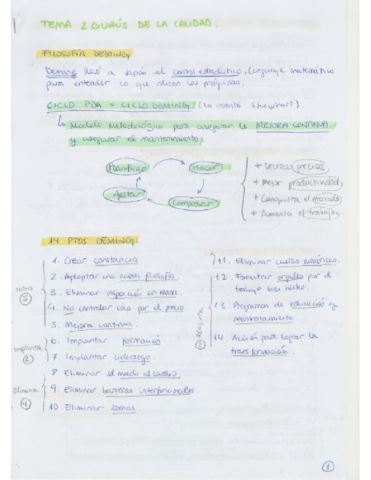 TEMA 2 GURÚS DE LA CALIDAD.
FILOSOFÍA DEMING.
Deming llevó a Japón el control estadístico, (lenguaje matemático
para entender lo que dicen las máquinas.
CICLO PDA = CICLO DEMING. (Lo inventó Shewhart)
↳ Modelo metodológico para asegurar la MEJORA CONTINUA
y asegurar el mantenimiento.
Planificar → Hacer
Ajustar ← Comprobar
+ precios
+ Mejor productividad
+ Conquista el mercado
+ Aumenta el trabajo
14 PTOS DEMING.
1. Crear constancia
2. Adoptar una nueva filosofía
3. Eliminar inspección en masa.
4. No controlar solo por el precio
5. Mejora continua
6. Implantar formación
7. Implantar liderazgo
8 Eliminar el miedo al cambio
9 Eliminar barreras
10. Eliminar lemas
Implanta
2
Elimina
4
11. Eliminar cuotas numéricas.
12. Fomentar orgullo por el
trabajo bien hecho.
13. Programas de educación y
14. Acción para lograr la
transformación
1